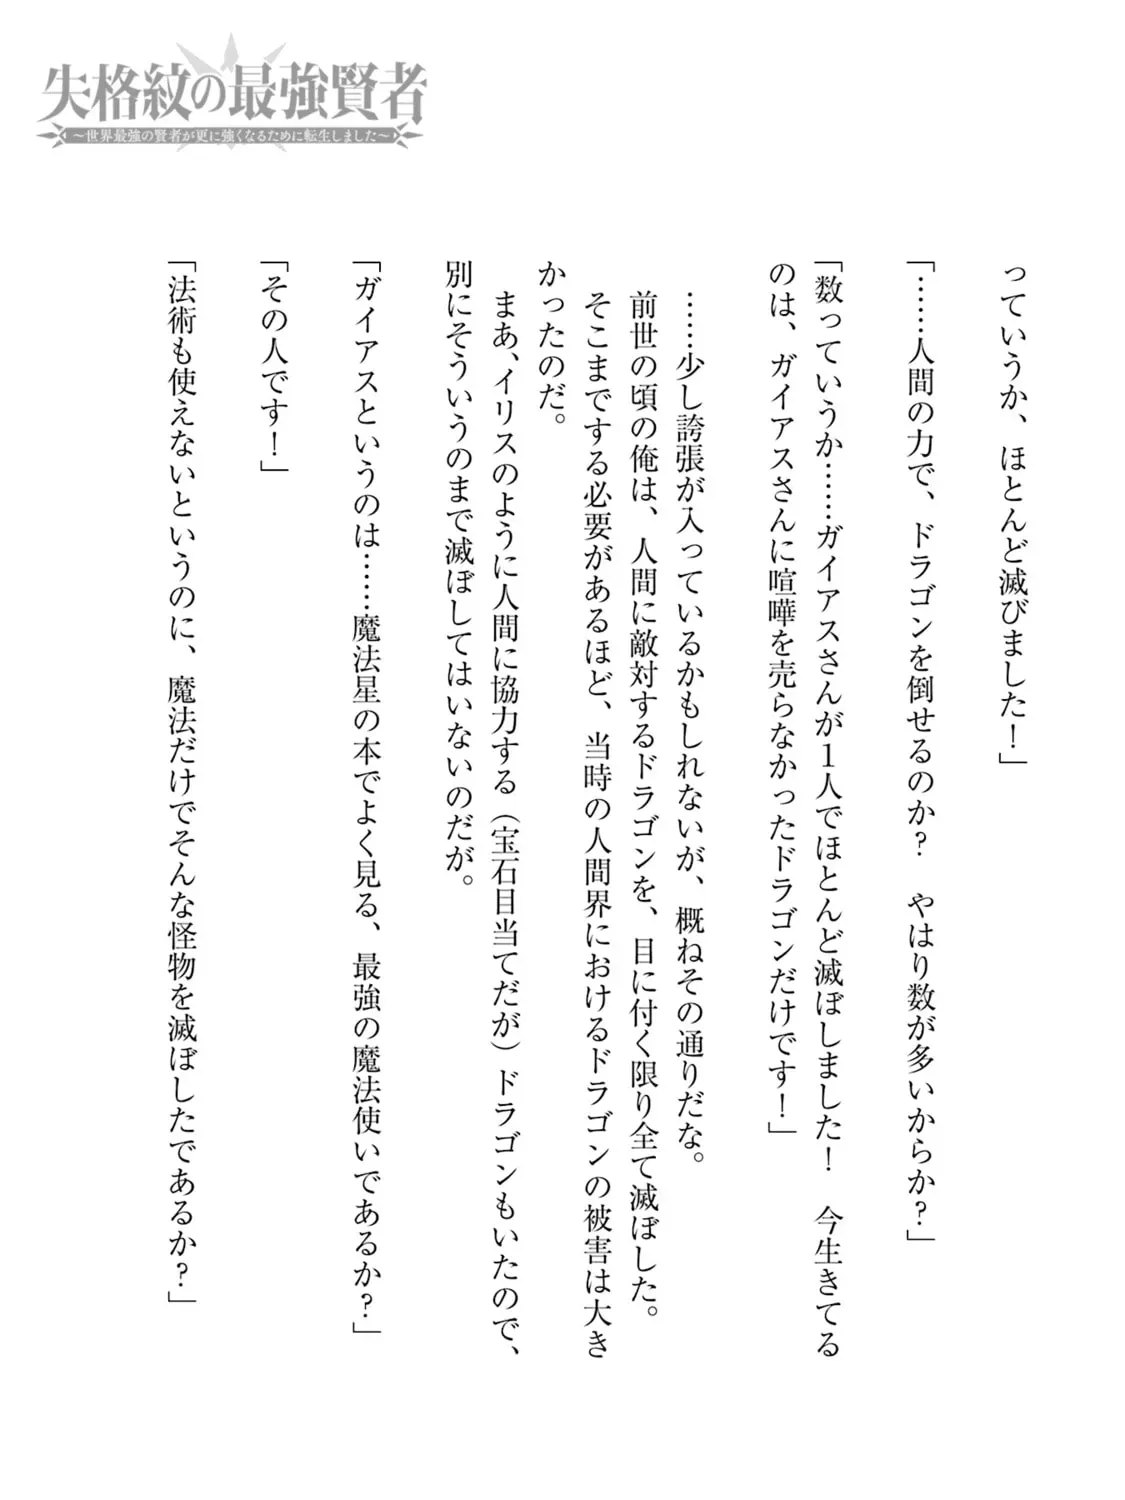 失格紋の最強賢者
～世界最強の賢者が更に強くなるために転生しました～
っていうか、ほとんど滅びました！」
「……人間の力で、ドラゴンを倒せるのか？　やはり数が多いからか？」
「数っていうか……ガイアスさんが１人でほとんど滅ぼしました！　今生きてる
のは、ガイアスさんに喧嘩を売らなかったドラゴンだけです！」
……少し誇張が入っているかもしれないが、概ねその通りだな。
前世の頃の俺は、人間に敵対するドラゴンを、目に付く限り全て滅ぼした。
そこまでする必要があるほど、当時の人間界におけるドラゴンの被害は大き
かったのだ。
まあ、イリスのように人間に協力する（宝石目当てだが）ドラゴンもいたので、
別にそういうのまで滅ぼしてはいないのだが。
「ガイアスというのは……魔法星の本でよく見る、最強の魔法使いであるか？」
「その人です！」
「法術も使えないというのに、魔法だけでそんな怪物を滅ぼしたであるか？」